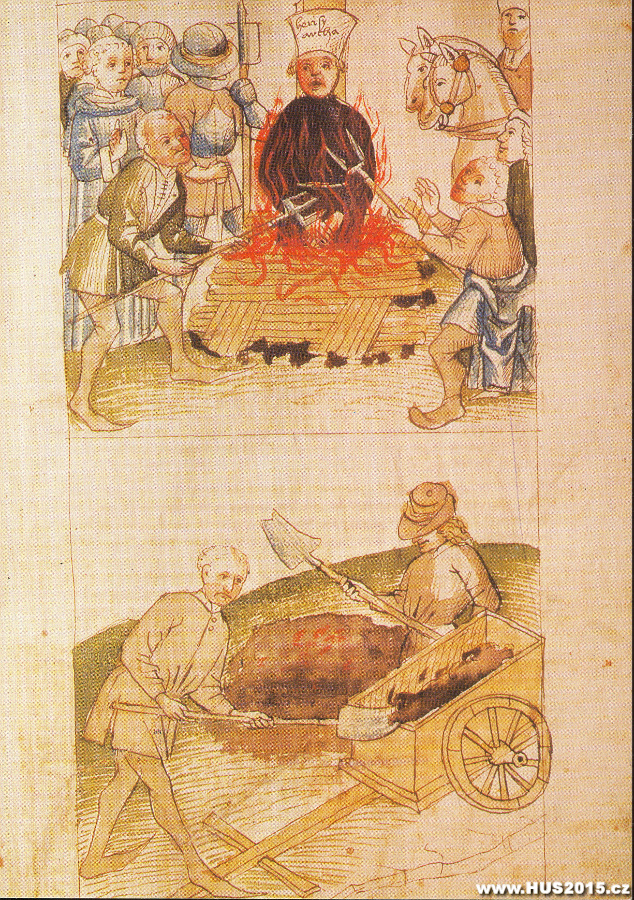 heresy
archa
www.HUS2015.cz